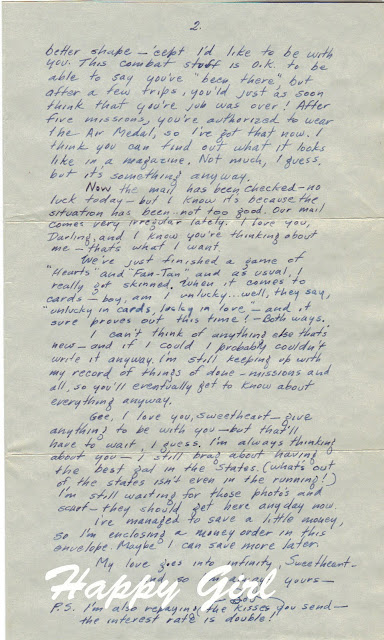 2.
better shape — 'cept I'd like to be with
you. This combat stuff is O.K. to be
able to say you've "been there," but
after a few trips, you'd just as soon
think that you're job was over! After
five missions, you're authorized to wear
the Air Medal, so I've got that now. I
think you can find out what it looks
like in a magazine. Not much, I guess,
but it's something anyway.
Now the mail has been checked — no
luck today — but I know it's because the
situation has been not too good. Our mail
comes very irregular lately. I love you,
Darling, and I know you're thinking about
me — that's what I want.
We've just finished a game of
"Hearts" and "Fan-Tan" and as usual, I
really got skinned. When it comes to
cards — boy, am I unlucky... well, they say,
"unlucky in cards, lucky in love" — and it
sure proves out this time! — Both ways.
I can't think of anything else that's
new — and if I could I probably couldn't
write it anyway. I'm still keeping up with
my record of things of done — missions and
all, so you'll eventually get to know about
everything anyway.
Gee, I love you, sweetheart — give
anything to be with you — but that'll
have to wait, I guess. I'm always thinking
about you — I still brag about having
the best gal in the States. (what's out
of the states isn't even in the running!)
I'm still waiting for those photos and
scarf — they should get here anyday now.
I've managed to save a little money,
so I'm enclosing a money order in this
envelope. Maybe I can save more later.
My love goes into infinity, Sweetheart —
so yours —
Happy Girl
P.S. I'm also repaying the kisses you send —
the interest rate is double!